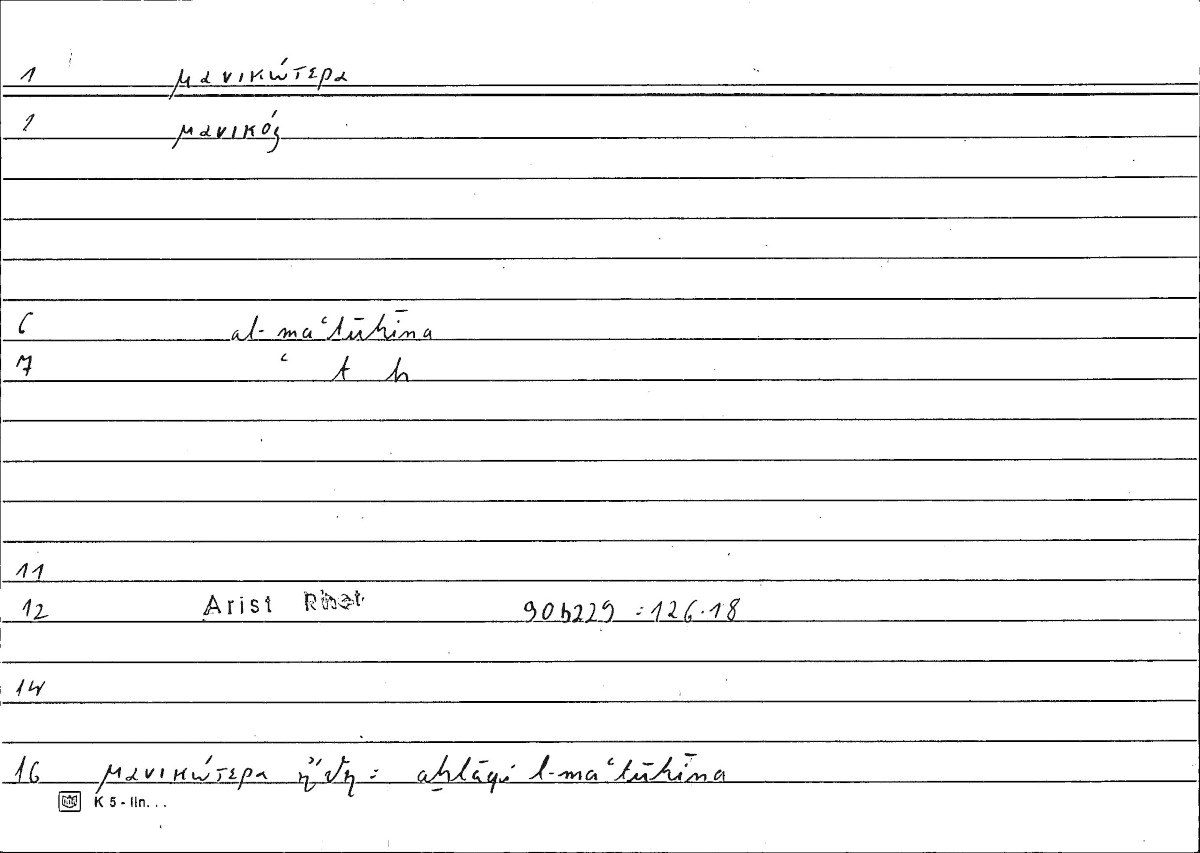 1 μανικώτερα
2 μανικός
6 al-maʿtūhīna
7 ʿ t h
11
12 Arist Rhet 90b229 : 126.18
14
16 μανικώτερα ἤθη = aḫlāqi l-maʿtūhīna
K 5 - lin...